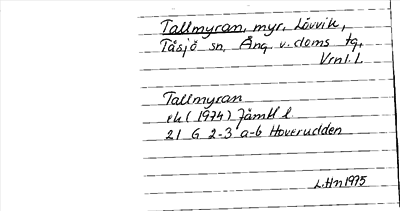 Tallmyran, myr, Lövvik,
Tåsjö sn, Ång. v. doms tg,
Vrnl. L
Tallmyran
ek (1974) Jämtl l
21 G 2-3 a-b Hoverudden
L.Hn 1975